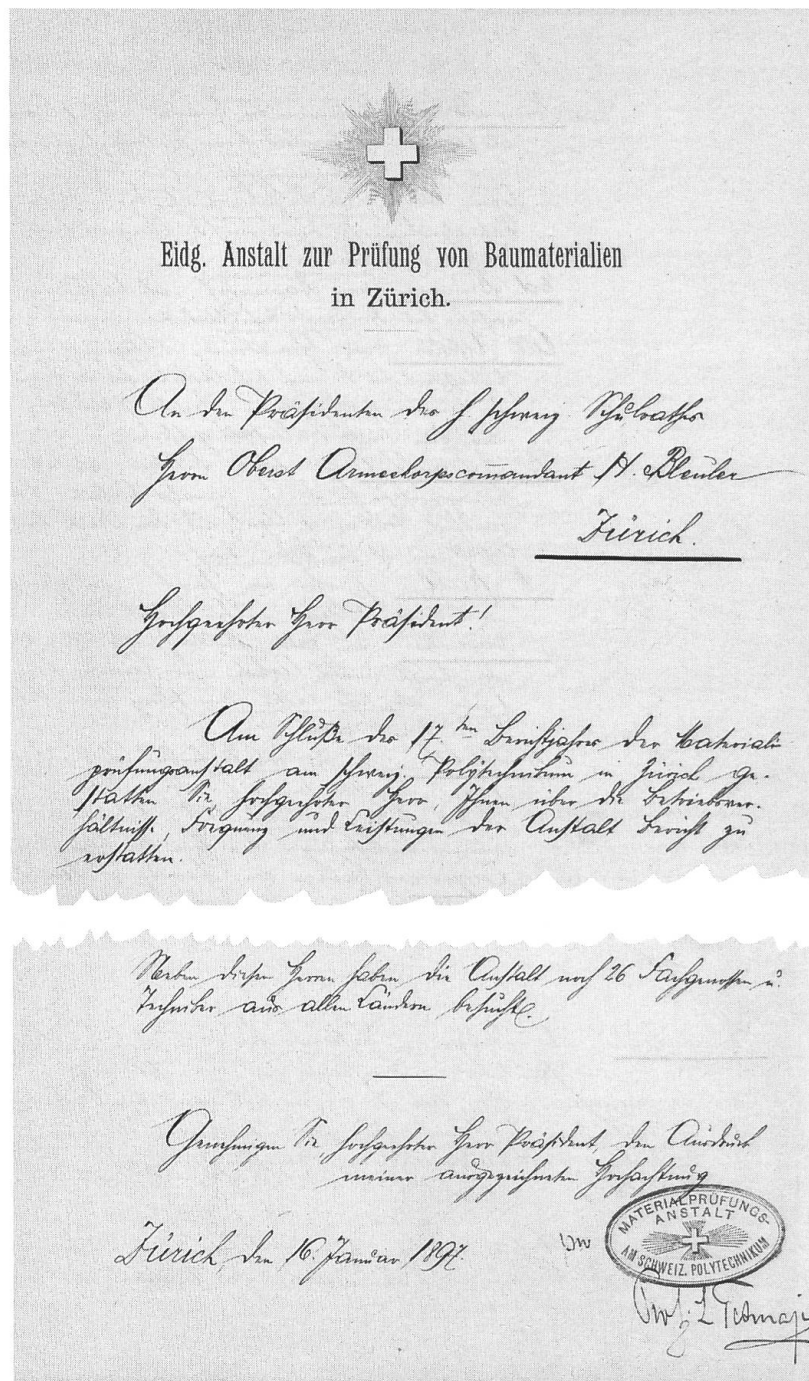 Eidg. Anstalt zur Prüfung von Baumaterialien
in Zürich.
An den Präsidenten des h. schweiz. Schulrathes
Herrn Oberst Armeekorpscommandant H. Bleuler
Zürich.
Hochgeehrter Herr Präsident!
Am Schluße des 17ten Berichtjahres der Material-
prüfungsanstalt am schweiz. Polytechnikum in Zürich ge-
statten Sie, hochgeehrter Herr, Ihnen über die Betriebsver-
hältnisse, und Leistungen der Anstalt Bericht zu
erstatten.
Neben diesen Herren haben die Anstalt noch 26 Fachgenossen u.
Techniker aus allen Ländern besucht.
Genehmigen Sie hochgeehrter Herr Präsident, den Ausdruck
meiner ausgezeichneten Hochachtung
Zürich, den 16. Januar 1897.
MATERIALPRÜFUNGS-
ANSTALT
AM SCHWEIZ. POLYTECHNIKUM
Prof. L. Tetmajer